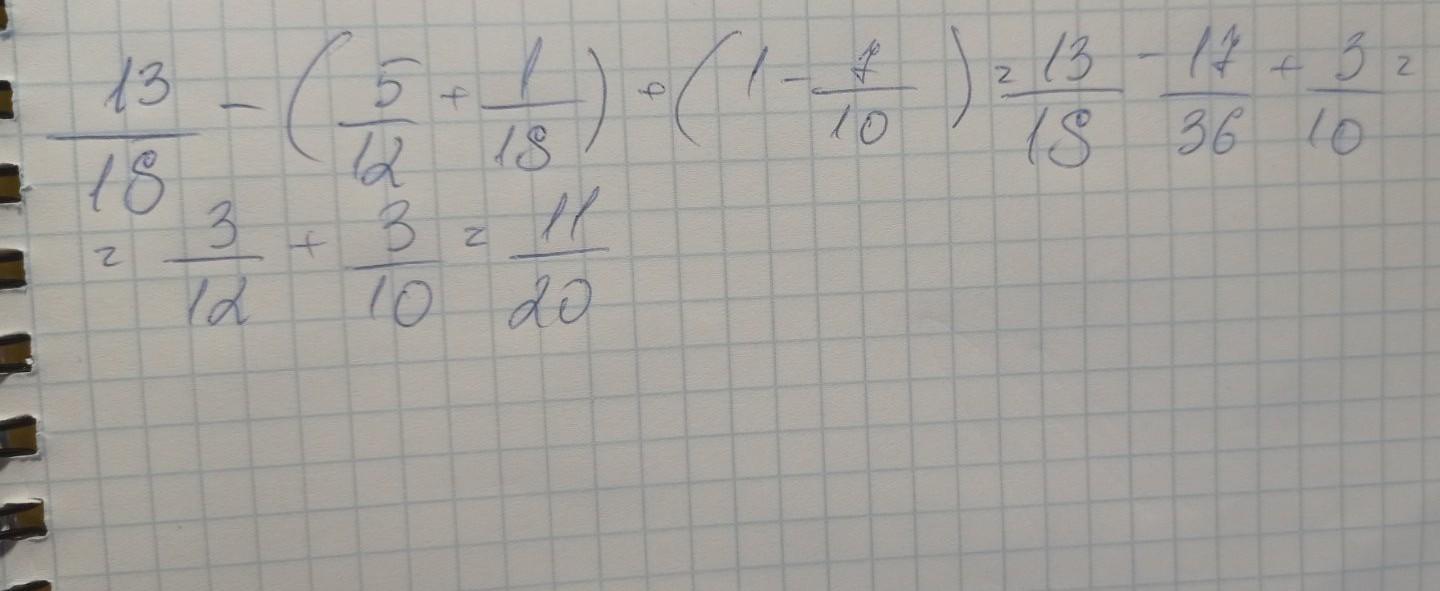 13/18 - (5/12 + 1/18) + (1 - 7/10) = 13/18 - 17/36 + 3/10 =
= 3/12 + 3/10 = 11/20